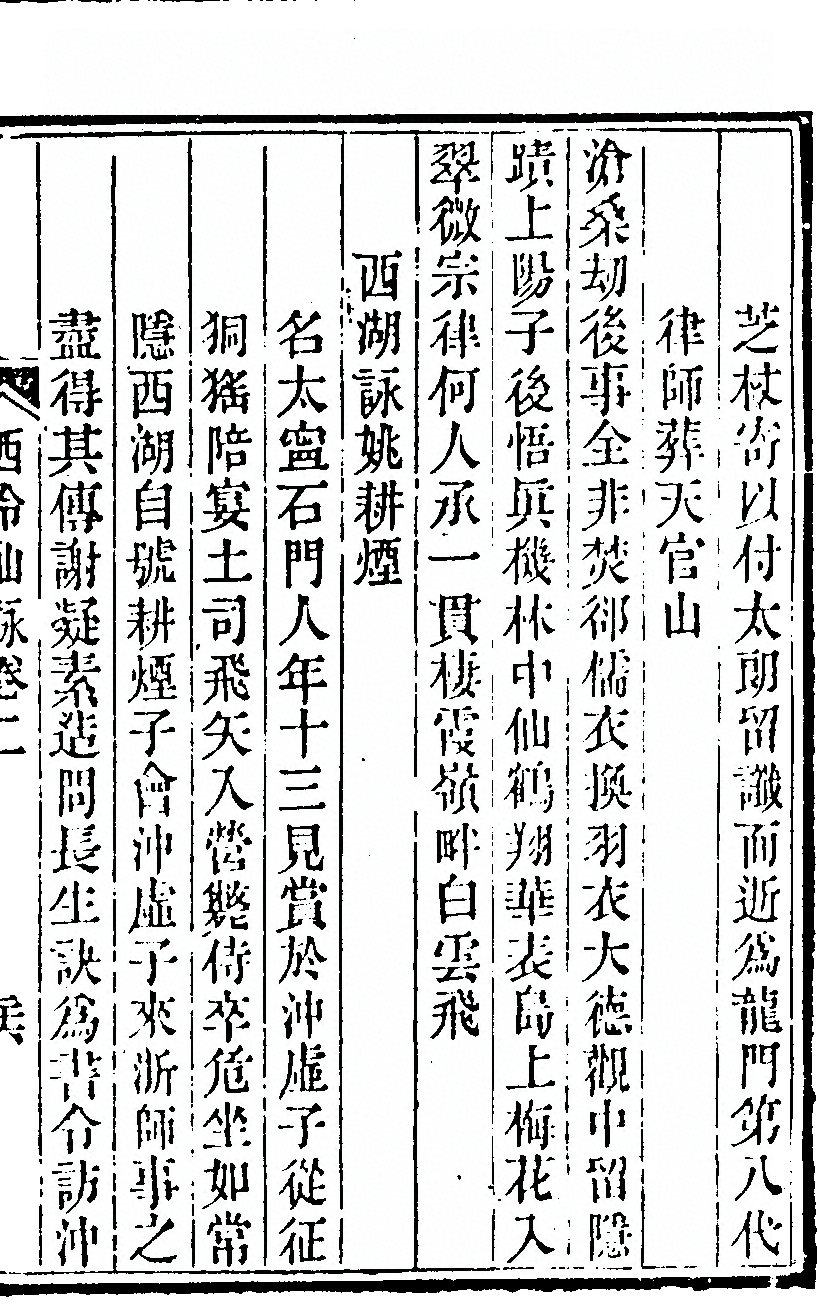 芝杖寄以付太朗留讖而近為龍門第八代
律師葬天官山
滄桑劫後事全非焚卻儒衣換羽衣大德觀中留隱
蹟上陽子後悟真機林中仙鶴翔華表島上梅花入
翠微宗律何人承一貫棲霞嶺畔白雲飛
西湖詠姚耕煙
名太寗石門人年十三見賞於沖虛子從征
狪猺陪宴土司飛矢入營斃侍卒危坐如常
隱西湖自號耕煙子會沖虛子來浙師事之
盡得其傳謝凝素造問長生訣為書令訪沖
西泠仙詠卷二